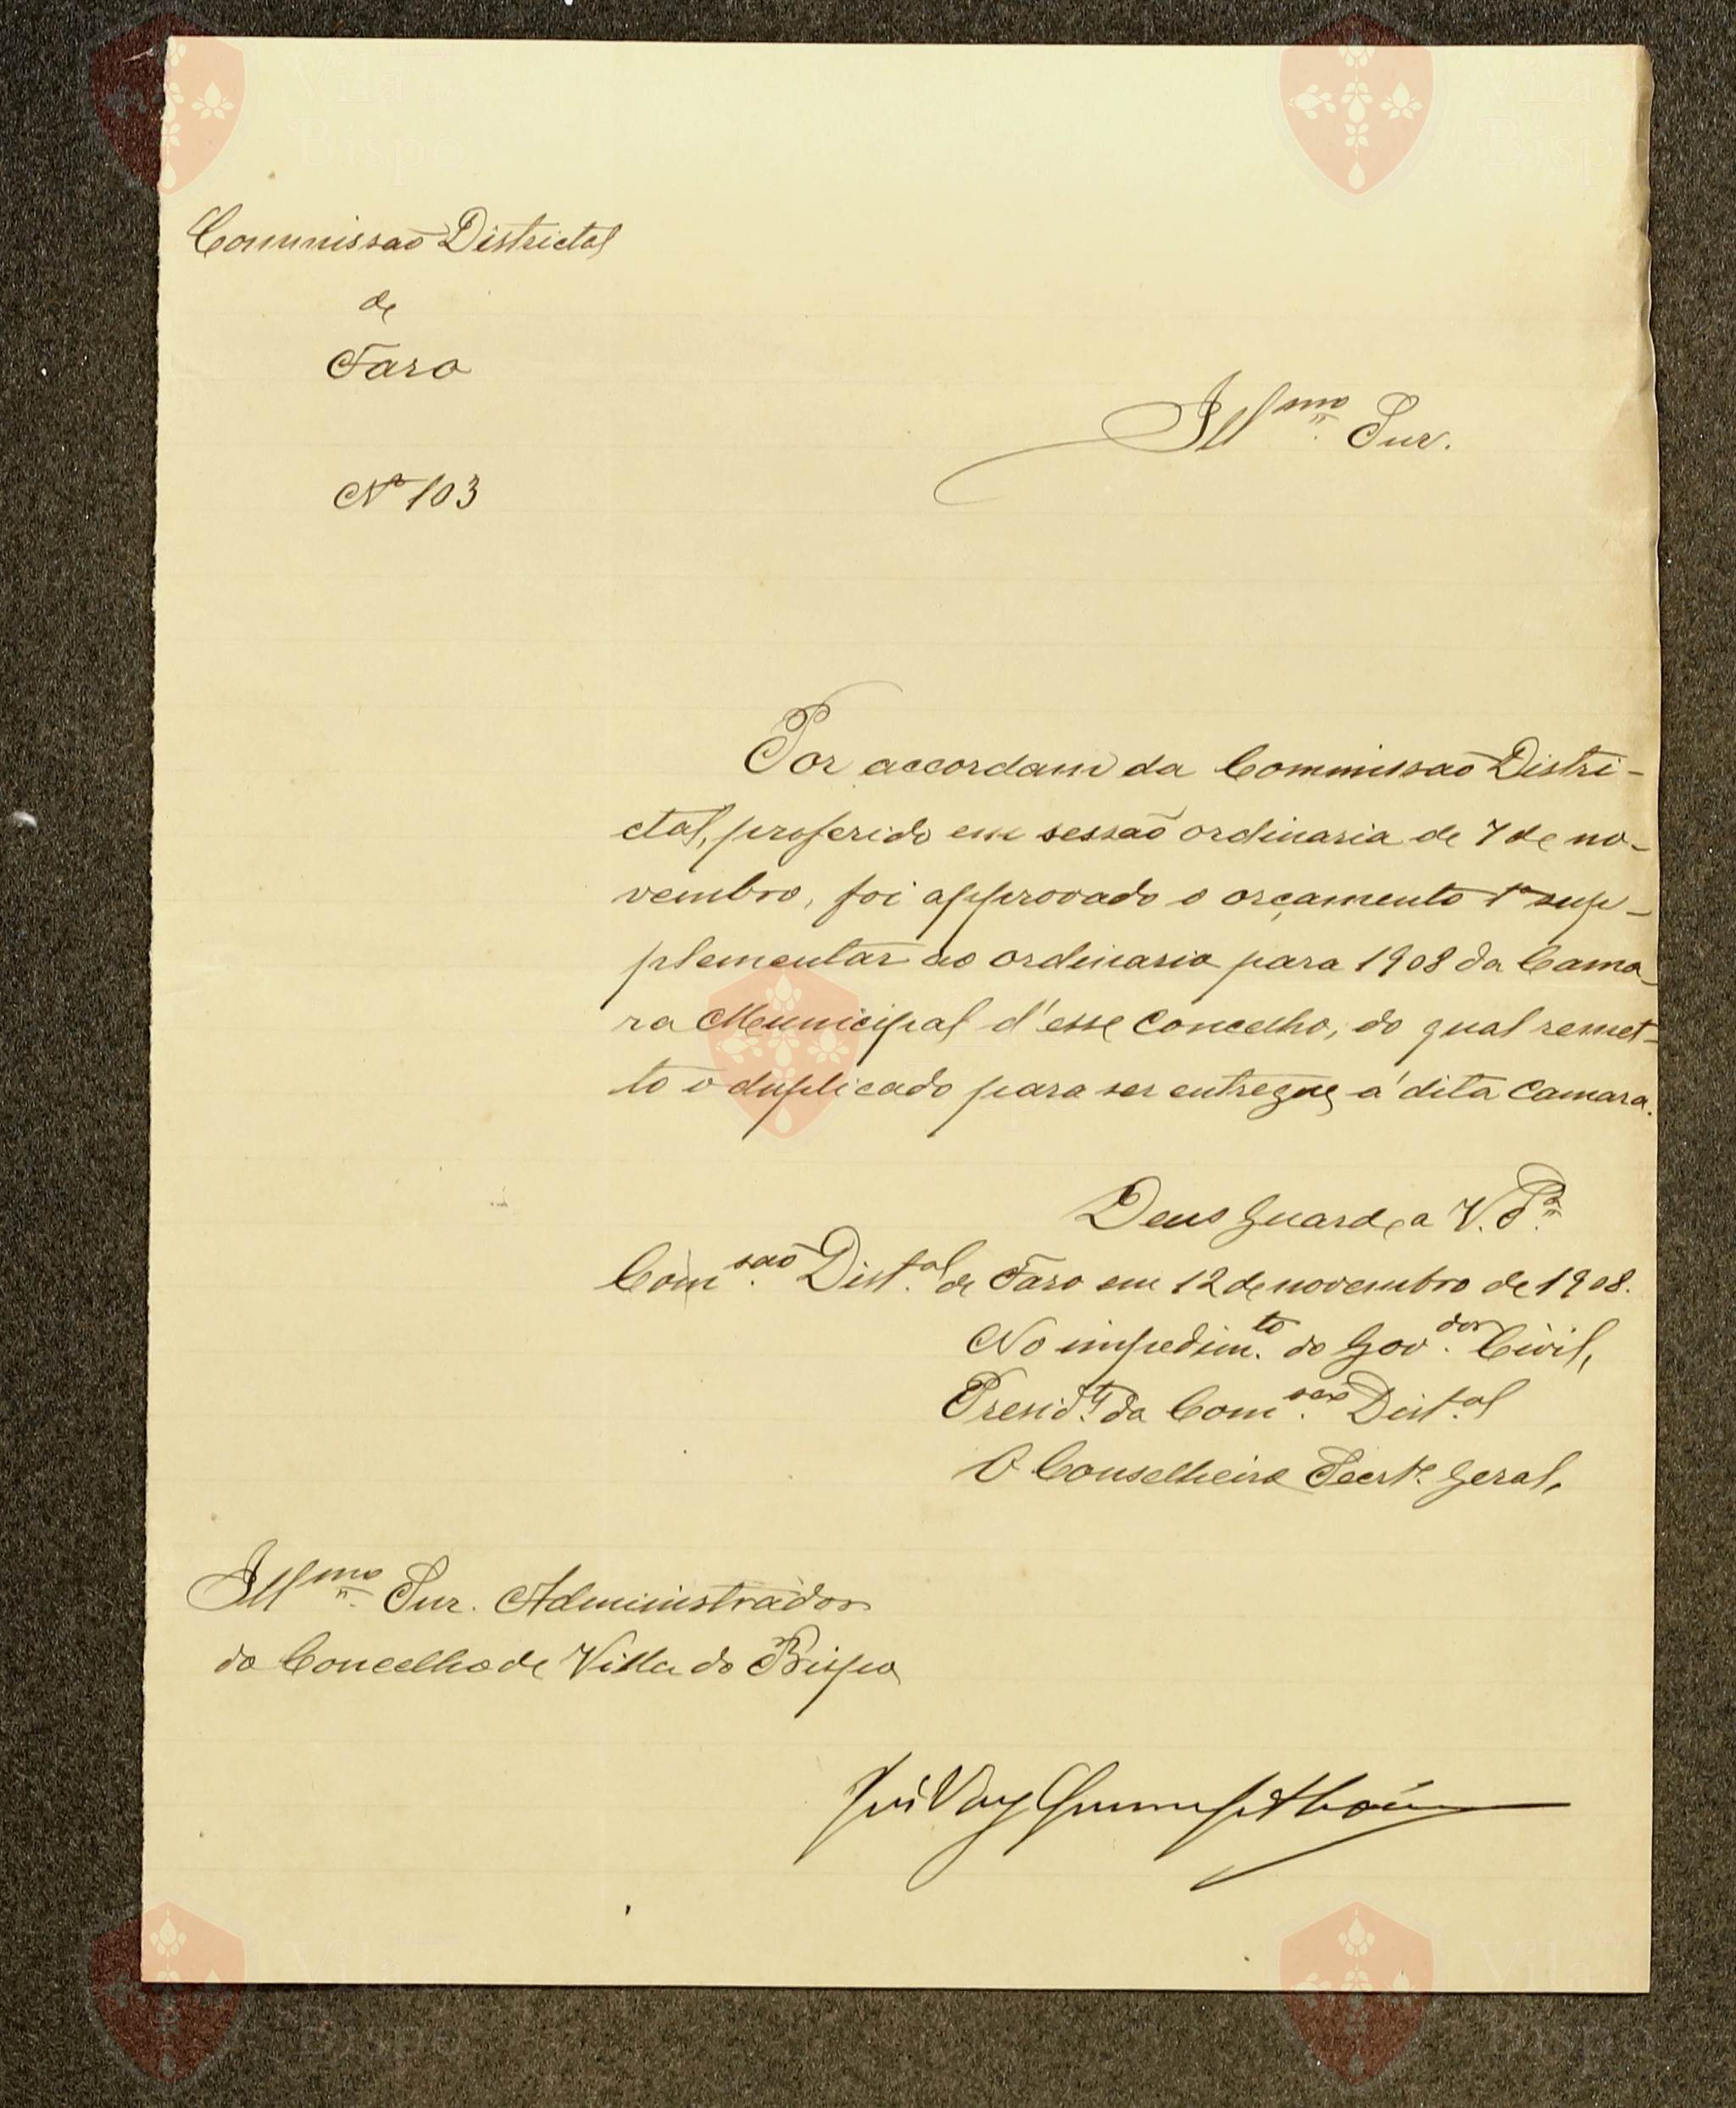 Commissão Districtal
de
Faro
Nº 103
Illmo. Snr.
Por accordam da Commissão Distri-
ctal, proferido em sessão ordinaria de 7 de no-
vembro, foi approvado o orçamento 1º sup-
plementar ao ordinario para 1908 da Cama-
ra Municipal d'esse Concelho, do qual remet-
to o duplicado para ser entregue á dita Camara.
Deus Guarde a V. Sª.
Com.são Dist.al de Faro em 12 de novembro de 1908.
No impedim.to do Gov.dor Civil,
Presid.te da Com.são Dist.al
O Conselheiro Secrt.º Geral,
Illmo. Snr. Administrador
do Concelho de Villa do Bispo
Vila
Bispo
Vila
Bispo
Vila
Bispo
Vila
Bispo